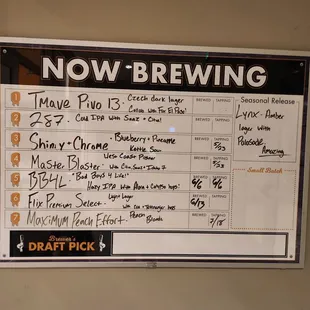 NOW BREWING
1 Tmave Pivo 13 · Czech dark lager BREWED TAPPING
Collab with Fox El Paso!
2 287 · Cold IPA with Saaz + Citra! BREWED TAPPING
3 Shiny + Chrome · Blueberry + Pancake BREWED TAPPING
Kettle Sour 5/23
4 Master Blaster · West Coast Pilsner BREWED TAPPING
5/23
5 BB4L · "Bad Boys 4 Life!" BREWED TAPPING
Hazy IPA with 6/6 6/6
6 Flix Premium Select · Light lager BREWED TAPPING
6/13
7 Maximum Peach Effort · Peach BREWED TAPPING
Blonde 7/18
Seasonal Release
Lynx - Amber
lager with
Amazing
Small Batch
Brewer's
DRAFT PICK